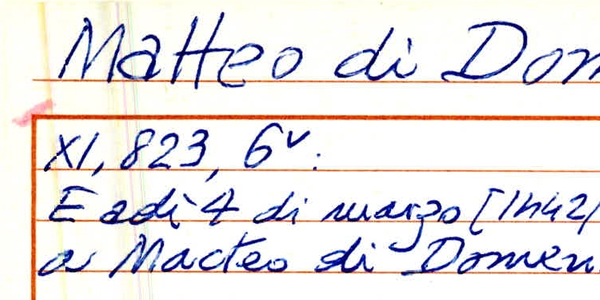 Matteo di Dom
XI, 823, 6v:
E adì 4 di marzo [1442/
a Macteo di Domen